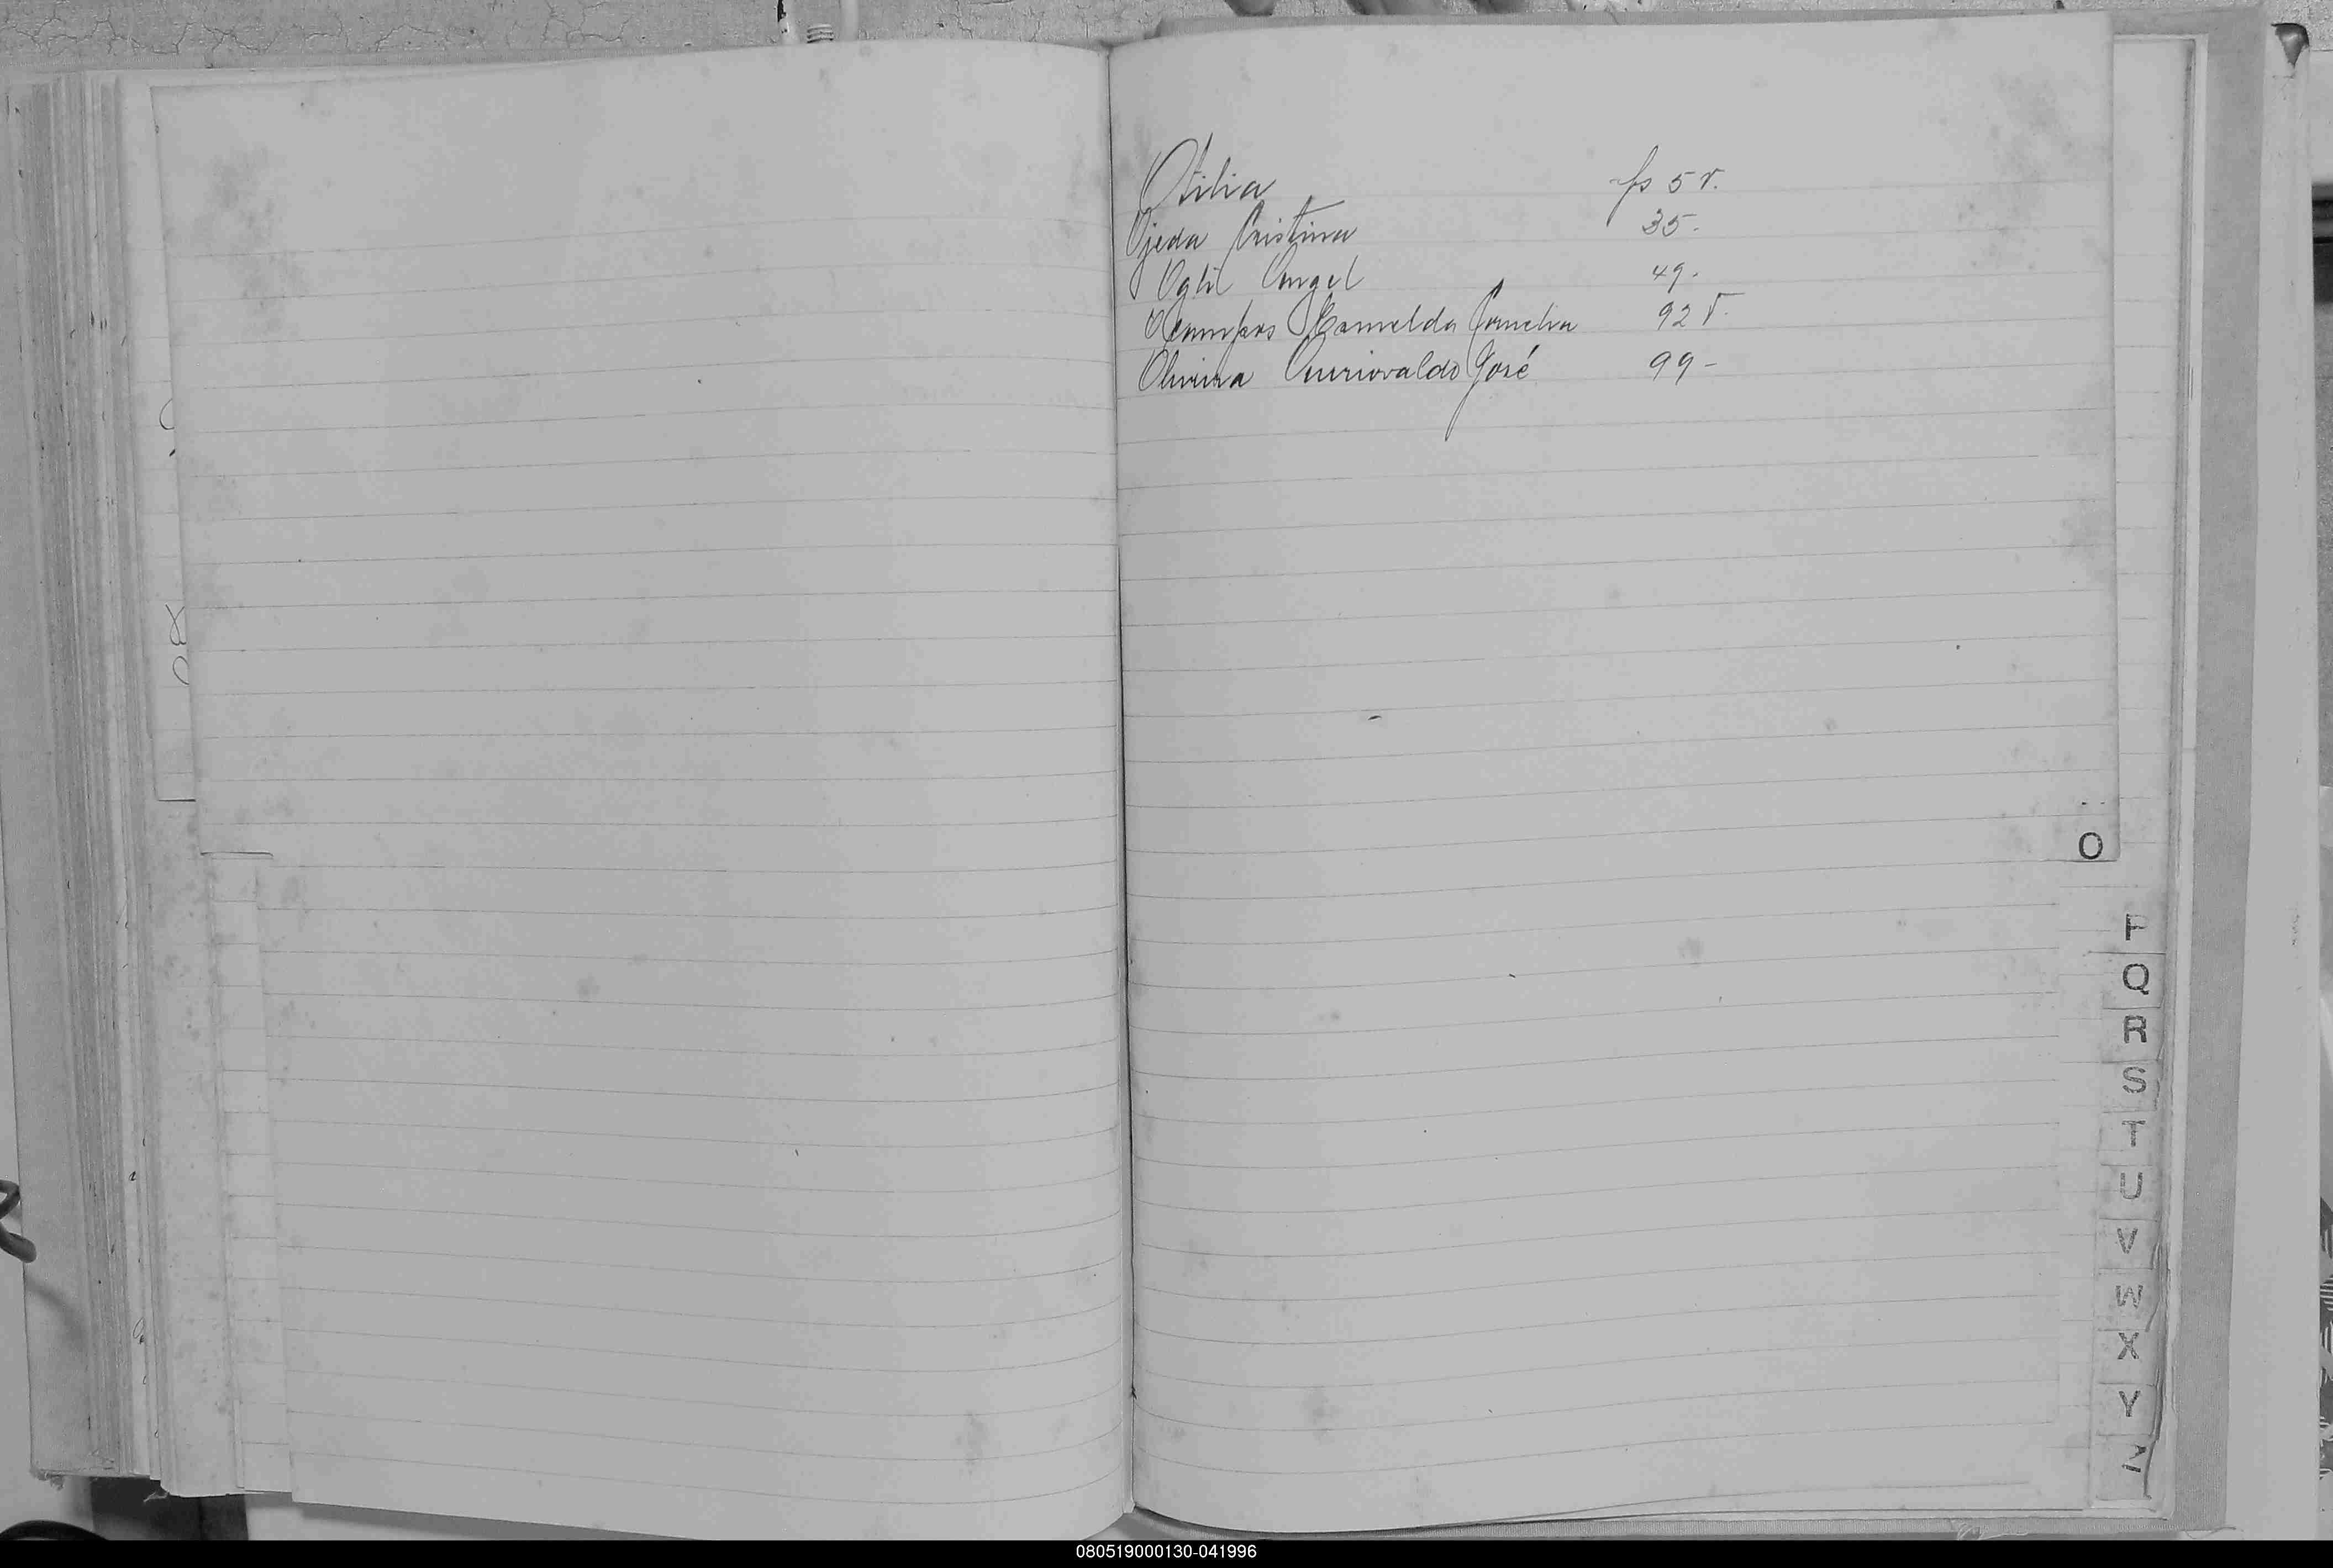 Otilia fs 5 v.
Ojeda Cristina 35.
Angel 49.
Ocampos Esmelda Cornelia 92 v.
Oliveira José 99 -
O
P
Q
R
S
T
U
V
W
X
Y
Z
080519000130-041996